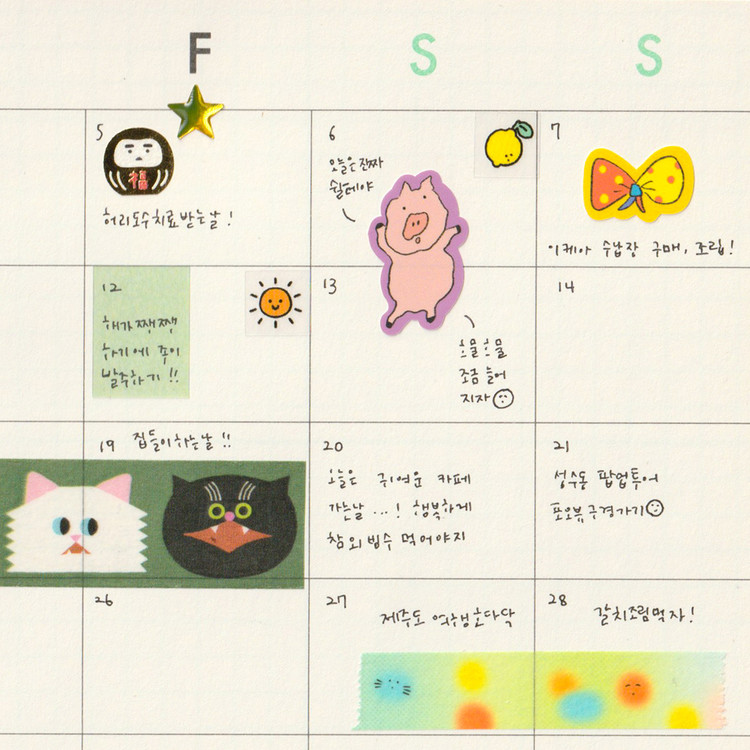 F
S
S
5
福
허리도수치료받는날!
6
오늘은진짜
쉴테야
7
이케아 수납장 구매, 조립!
12
해가쨍쨍
하기에 종이
발주하기!!
13
흐물흐물
조금 늘어
지자
14
19 집들이하는날!!
20
오늘은 귀여운 카페
가는날...! 행복하게
참외빙수 먹어야지
21
성수동 팝업투어
포오뷰구경가기
26
27 제주도 여행호다닥
28 갈치조림먹자!